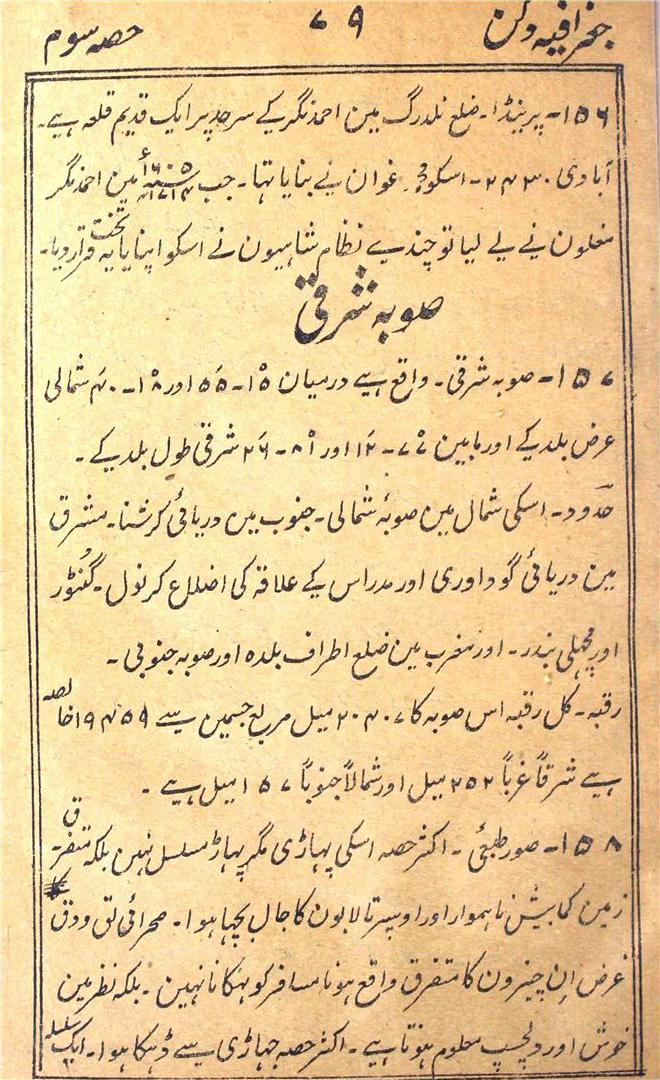 جغرافیہ دکن ۷۹ حصہ سوم
۱۵۶۔ پرینڈا۔ ضلع نلدرگ مین احمد نگر کے سرحد پر ایک قدیم قلعہ ہے۔
آبادی ۲۴۳۰۔ اسکو غوان نے بنایا تہا۔ جب ۱۶۰۵ء مین احمد نگر
مغلون نے لے لیا تو چندے نظام شاہیون نے اسکو اپنا پایہ تخت قرار دیا۔
صوبہ شرقی
۱۵۷۔ صوبہ شرقی۔ واقع ہے درمیان ۱۵۔ ۵۵ اور ۱۸۔ ۴۰ شمالی
عرض بلد کے اور مابین ۷۷۔ ۱۲ اور ۸۱۔ ۲۶ شرقی طول بلد کے۔
حدود۔ اسکی شمال مین صوبۂ شمالی۔ جنوب مین دریائی کرشنا۔ مشرق
مین دریائی گوداوری اور مدراس کے علاقہ کی اضلاع کرنول۔ گنٹور
اور مچہلی بندر۔ اور مغرب مین ضلع اطراف بلدہ اور صوبہ جنوبی۔
رقبہ۔ کل رقبہ اس صوبہ کا ۲۰۴۰۷ میل مربع جسمین سے ۱۹۴۵۹ خالصہ
ہے شرقاً غرباً ۲۵۲ میل اور شمالاً جنوباً ۱۵۷ میل ہے۔
۱۵۸۔ صور طبعی۔ اکثر حصہ اسکی پہاڑی مگر پہاڑ مسلسل نہین بلکہ متفرق۔
زمین کمابیش ناہموار اور اوسپر تالابون کا جال بچہا ہوا۔ صحرائی لق و دق
غرض اِن چیزون کا متفرق واقع ہونا مسافر کو ہنکانا نہین۔ بلکہ نظر مین
خوش اور دلچسپ معلوم ہوتا ہے۔ اکثر حصہ جہاڑی سے ڈہکا ہوا۔ ایک سلسلہ